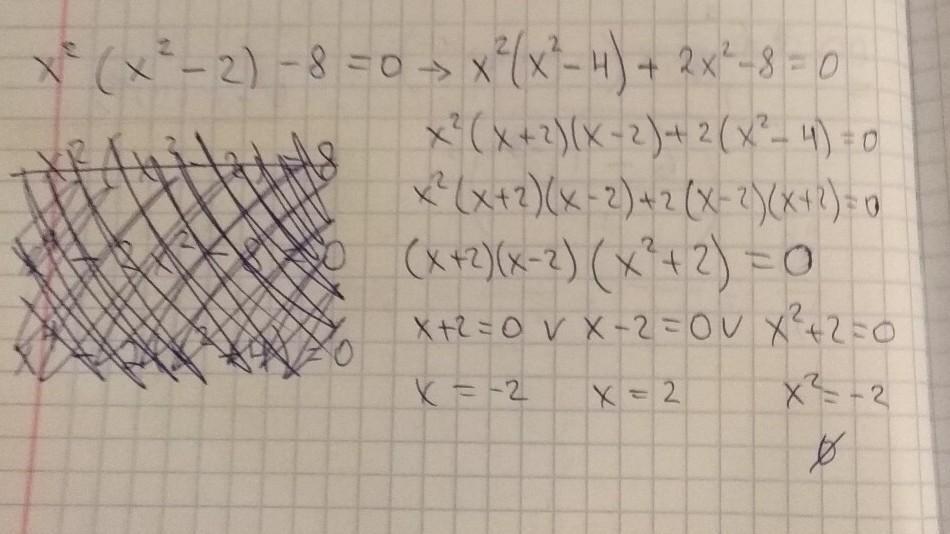 x² (x² - 2) - 8 = 0 → x²(x² - 4) + 2x² - 8 = 0
x²(x+2)(x-2) + 2(x² - 4) = 0
x²(x+2)(x-2) + 2(x-2)(x+2) = 0
(x+2)(x-2)(x²+2) = 0
x+2 = 0 ∨ x-2 = 0 ∨ x²+2 = 0
x = -2 x = 2 x² = -2
∅